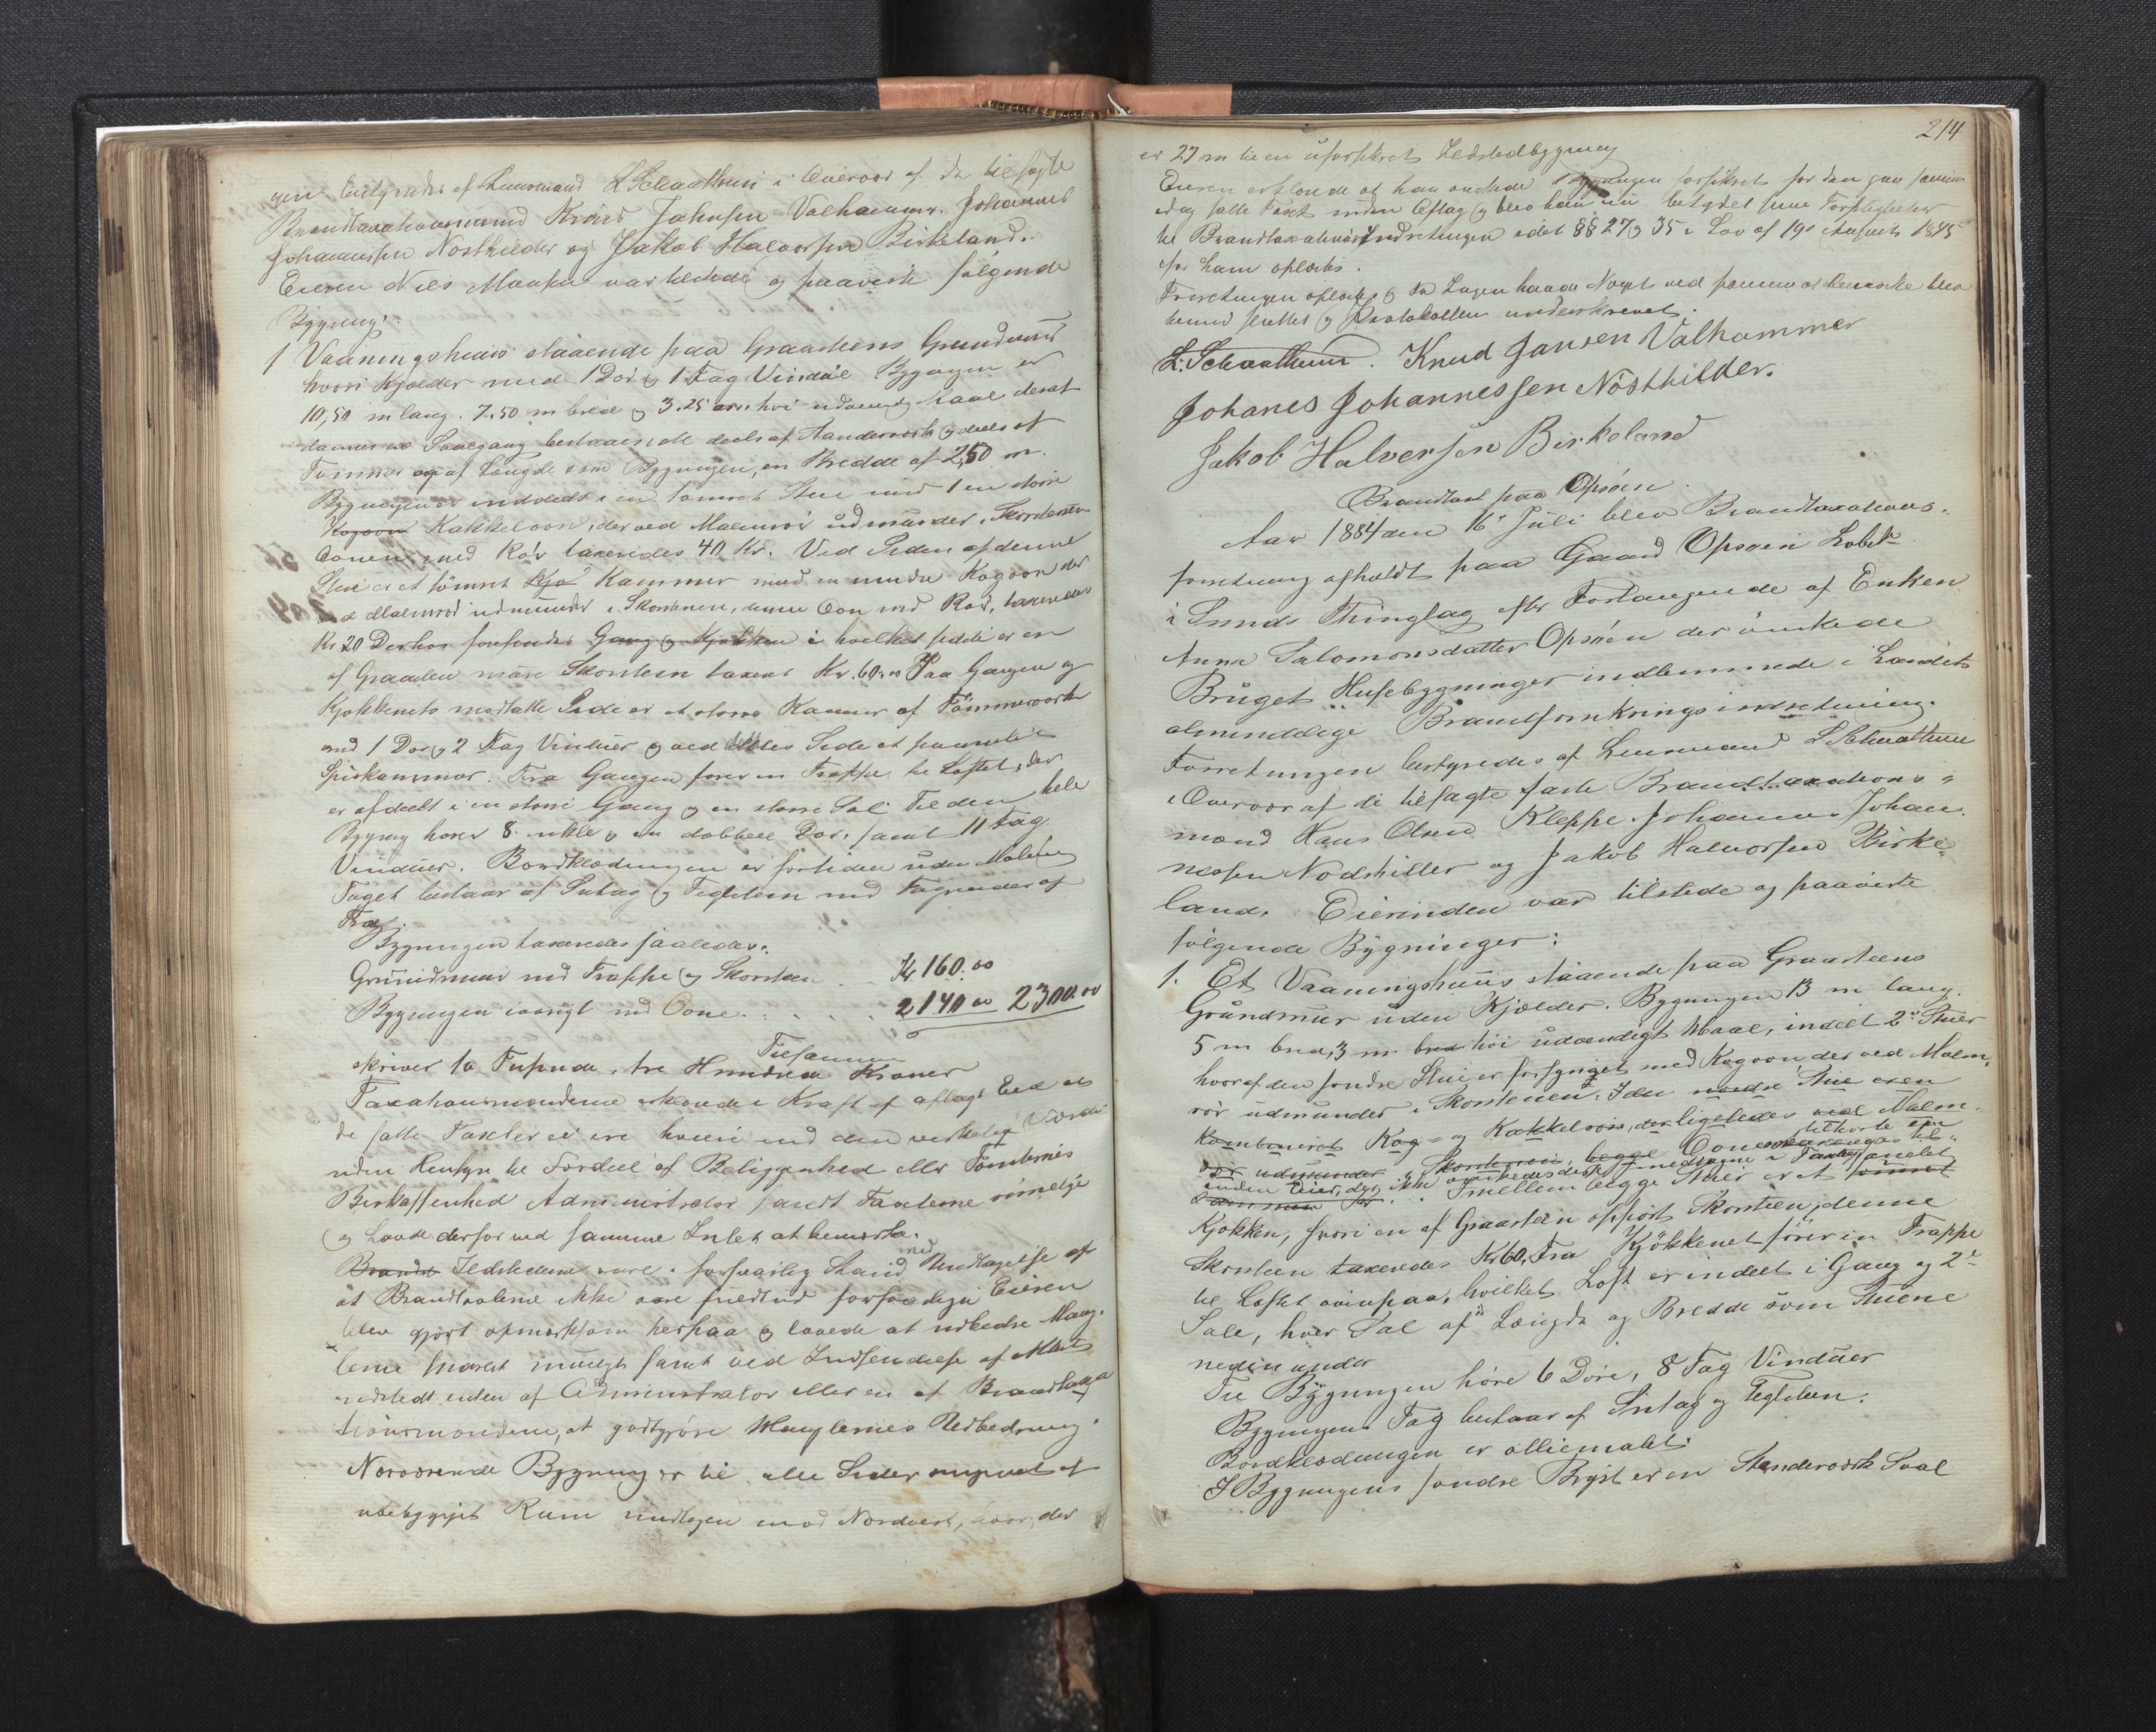 gen bestyredes af Lensmand L. Schaathun i Overvær af de tilsagte
Brandtaxationsmænd Knud Jahnsen Valhammer. Johannes
Johannessen Nøsthilder og Jakob Halvorsen Birkeland.
Eieren Nils Monsen var tilstede og paaviste følgende
Bygning:
1 Vaaningshuus staaende paa Graasteens Grundmuur
hvori Kjælder med 1 Dør og 1 Fag Vindue Bygningen er
10,50 m lang. 7.50 m bred og 3.25 m høi udvendig Maal deraf
dannes en Svalegang bestaaende deels af Standværk og deels af
Tømmer og af Længde som Bygningen, en Bredde af 2,50 m.
Bygningen er inddelt i en tømret Stue med 1 en større
Kogeovn Kakkelovn, der ved Malmrør udmunder i Skorstenen
Ovnen med Rør taxeredes 40 Kr. Ved Siden af denne
Stue er et tømret Kjø Kammer med en mindre Kogovn der
ved Malmrør udmunder i Skorstenen, denne Ovn med Rør, taxeredes
Kr 20 Derhos forefindes Gang og Kjøkken i hvilket sidste er en
af Graasten muret Skorsten taxeret Kr. 60.00 Paa Gangen og
Kjøkkenets modsatte Side er et større Kammer af Tømmerværk
med 1 Dør og 2 Fag Vinduer og ved dettes Side et panelet
Spiskammer. Fra Gangen fører en Trappe til Loftet, der
er afdeelt i en større Gang og en større Sal. Til den hele
Bygning hører 8 enkle og en dobbelt Dør, samt 11 Fag
Vinduer. Bordklædningen er fortiden uden Maling
Taget bestaar af Sutag og Teglsten med Tagrender af
Træ.
Bygningen taxeredes saaledes:
Grundmuur med Trappe og Skorsten . . Kr 160.00
Bygningen iøvrigt med Ovne . . . . . 2140.00 2300.00
Tilsammen
skriver to Tusinde, tre Hundrede Kroner
Taxationsmændene erklærede i Kraft af aflagt Eed at
de satte Taxter ei ere høiere end den virkelige Værdi
uden Hensyn til Fordeel af Beliggenhed eller Tomternes
Beskaffenhed Administrator fandt Taxterne rimelige
og havde derfor ved samme Intet at bemærke.
Brandst Ildstederne vare i forsvarlig Stand med Undtagelse af
at Brandhalerne ikke vare fuldtud forsvarlige Eieren
blev gjort opmærksom herpaa og lovede at udbedre Mang-
lerne snarest muligt samt ved Indsendelse af Attest
udstedt enten af Administrator eller en af Brandtaxa
tionsmændene, at godtgjøre Manglernes Udbedring.
Nærværende Bygning er til alle Sider omgivet af
ubebygget Rum undtagen mod Nordvest, hvor der
214
er 27 m til en uforsikret Ildstedbygning
Eieren erklærede at han ønskede Bygningen forsikret for den paa samme
idag satte Taxt uden Aftag og blev han nu betydet sine Forpligtelser
til Brandtaxations Indretningen idet §§ 27 og 35 i Lov af 19de August 1845
for ham oplæstes.
Forretningen oplæstes og da Ingen havde Noget ved samme at bemærke blev
denne sluttet og Protokollen underskrevet.
L. Schaathun. Knud Jansen Valhammer
Johanes Johannessen Nösthilder.
Jakob Halversen Birkeland
Brandtaxt paa Opsøen.
Aar 1884 den 16de Juli blev Brandtaxations-
forretning afholdt paa Gaard Opsøen Løbeno
i Sunds Thinglag efter Forlangende af Enken
Anna Salomonsdatter Opsøen der ønskede
Brugets Husebygninger indlemmede i Landets
almindelige Brandforsikringsindretning.
Forretningen bestyredes af Lensmand L. Schaathun
i Overvær af de tilsagte faste Brandtaxations-
mænd Hans Olsen Kleppe Johannes Johan
nessen Nødshiller og Jakob Halvorsen Birke-
land. Eierinden var tilstede og paaviste
følgende Bygninger:
1. Et Vaaningshuus staaende paa Graasteens
Grundmur uden Kjælder. Bygningen 13 m lang.
5 m bred, 3 m bred høi udvendigt Maal, indelt 2de Stuer
hvoraf den søndre Stue er forsynget med Kogovn, der ved Malm-
rør udmunder i Skorstenen. I den nordre Stue er en
kombineret Kog- og Kakkelovn, der ligeledes ved Malm-
rør udmunder i Skorstenen, begge Ovne tilhørte en
anden Eier, der ikke ønskede disse medtagne i Taxten
Kammer Imellem begge Stuer er et tømret
Kjøkken, hvori en af Graasten opført Skorsteen, denne
Skorsten taxeredes Kr 60, Fra Kjøkkenet fører en Trappe
til Loftet ovenpaa, hvilket Loft er indeelt i Gang og 2de
Sale, hver Sal af Længde og Bredde som Stuene
nedenunder
Til Bygningen høre 6 Døre, 8 Fag Vinduer
Bygningens Tag bestaar af Sutag og Teglsten.
Bordklædningen er olliemalet.
I Bygningens søndre Bryst er en Standværk Sval